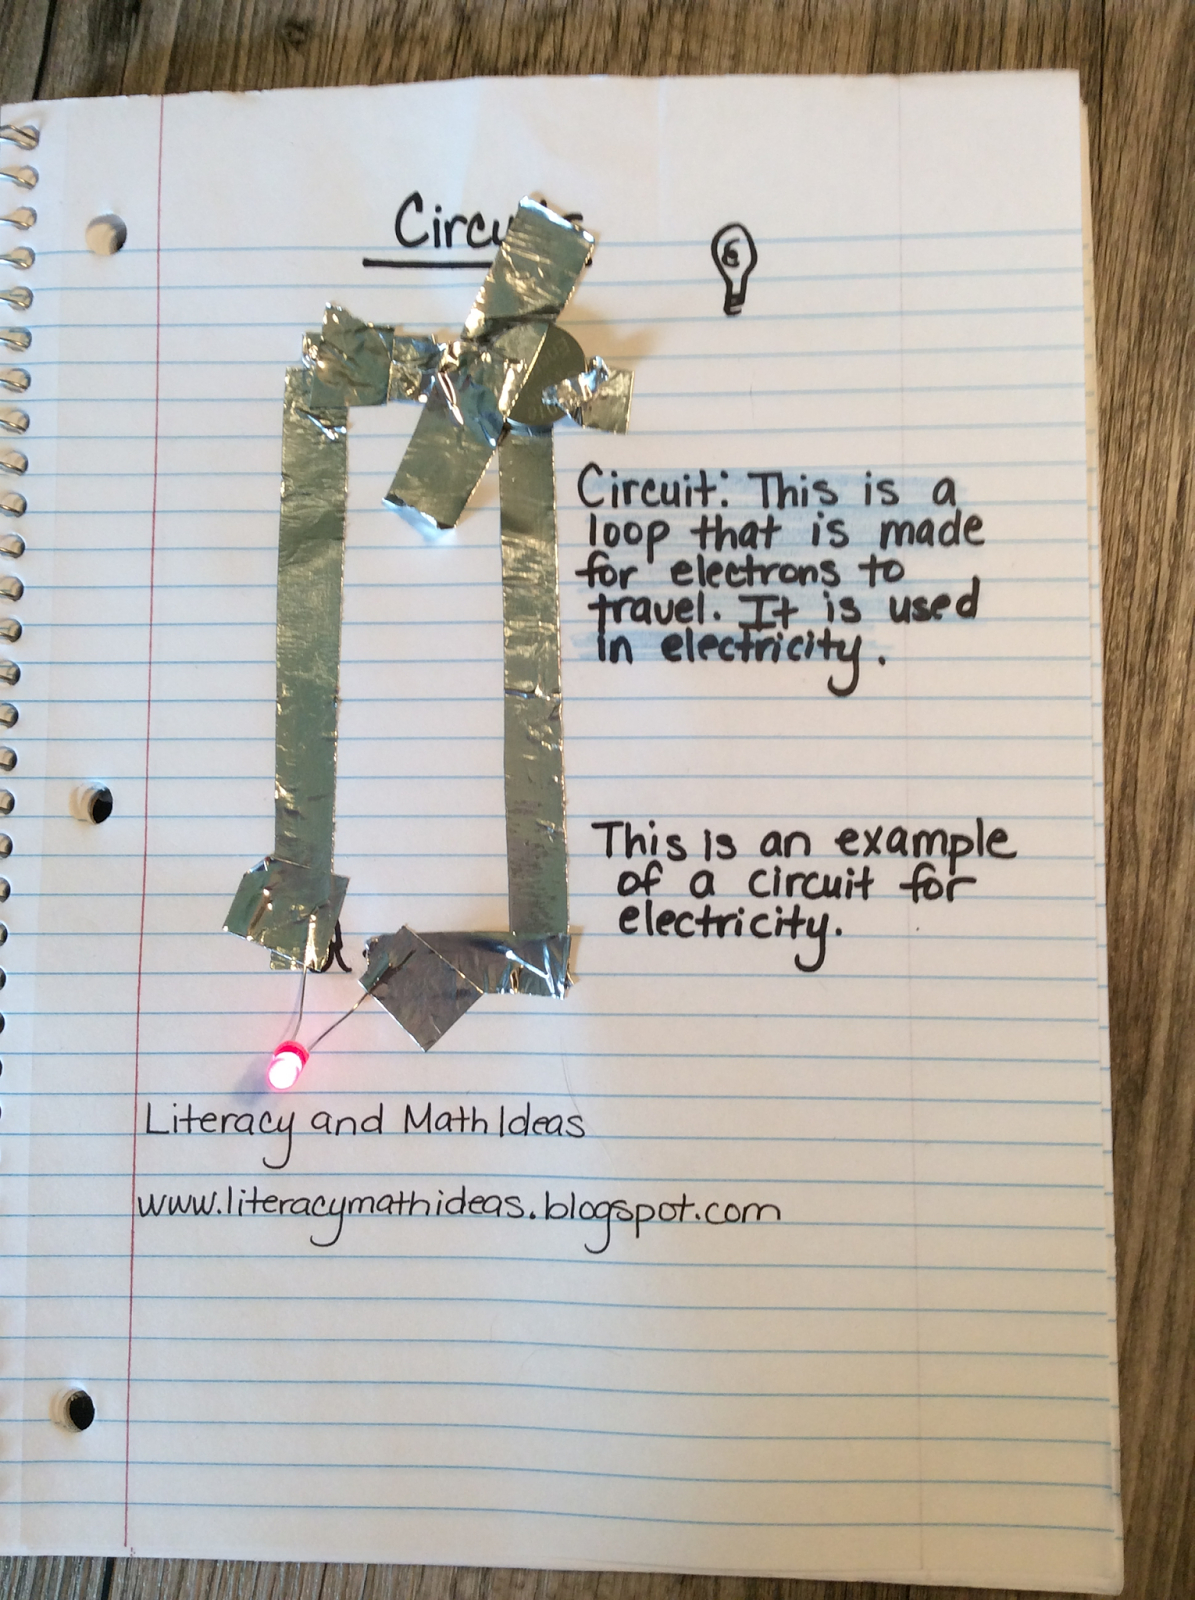 Circuit: This is a
loop that is made
for electrons to
travel. It is used
in electricity.
This is an example
of a circuit for
electricity.
Literacy and Math Ideas
www.literacymathideas.blogspot.com